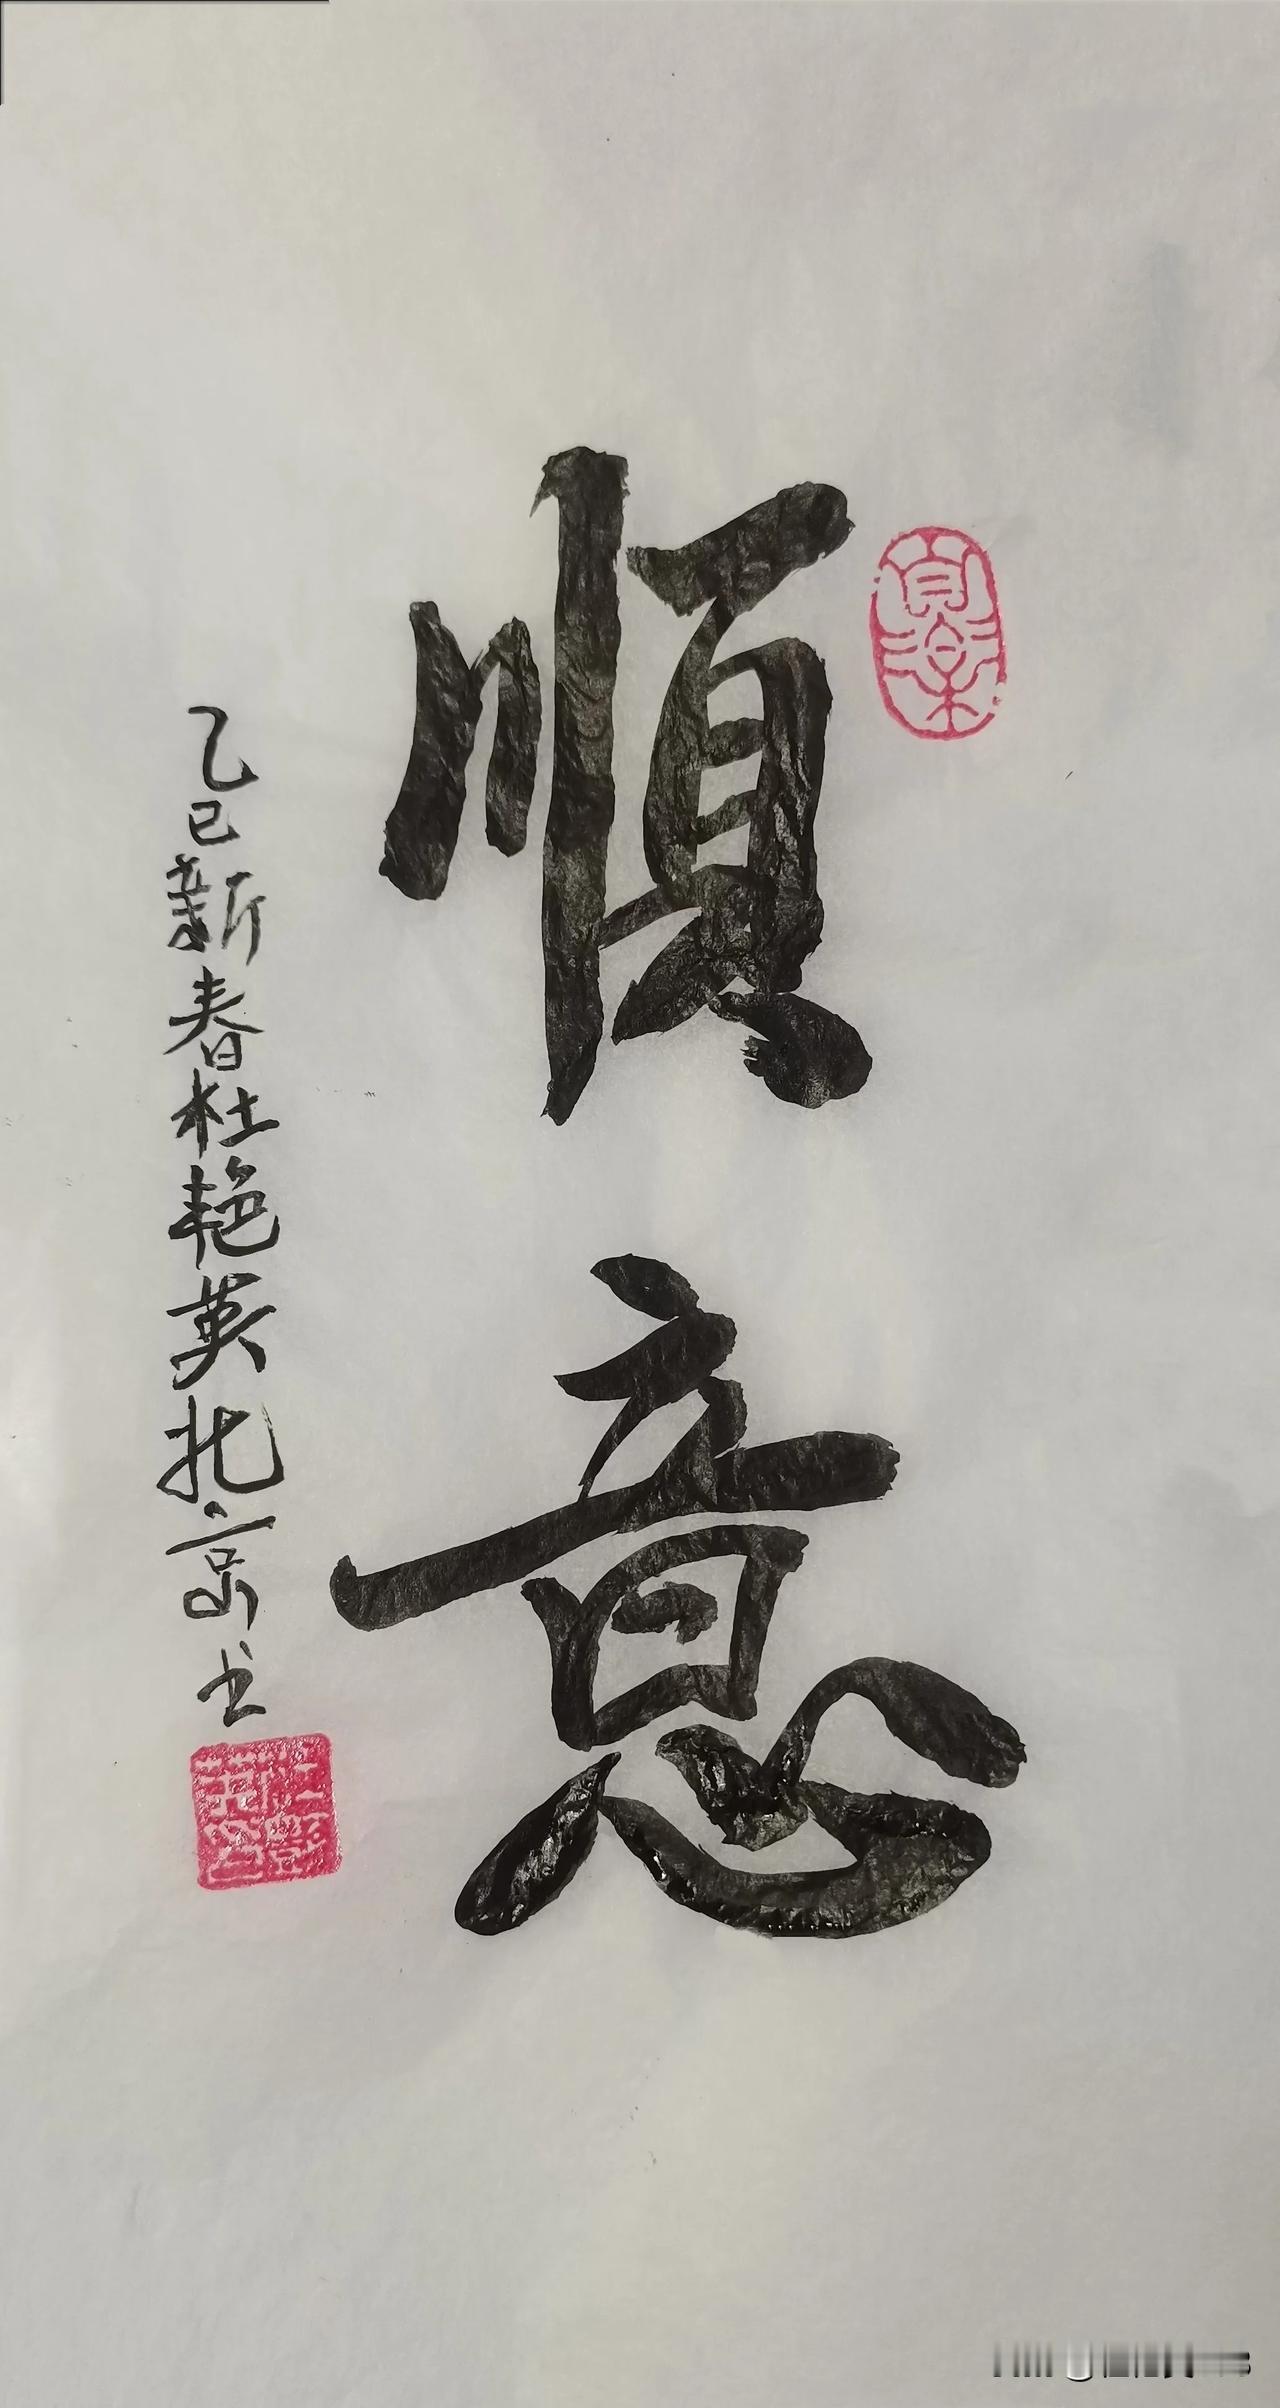 順意
乙巳新春杜艳英北京书